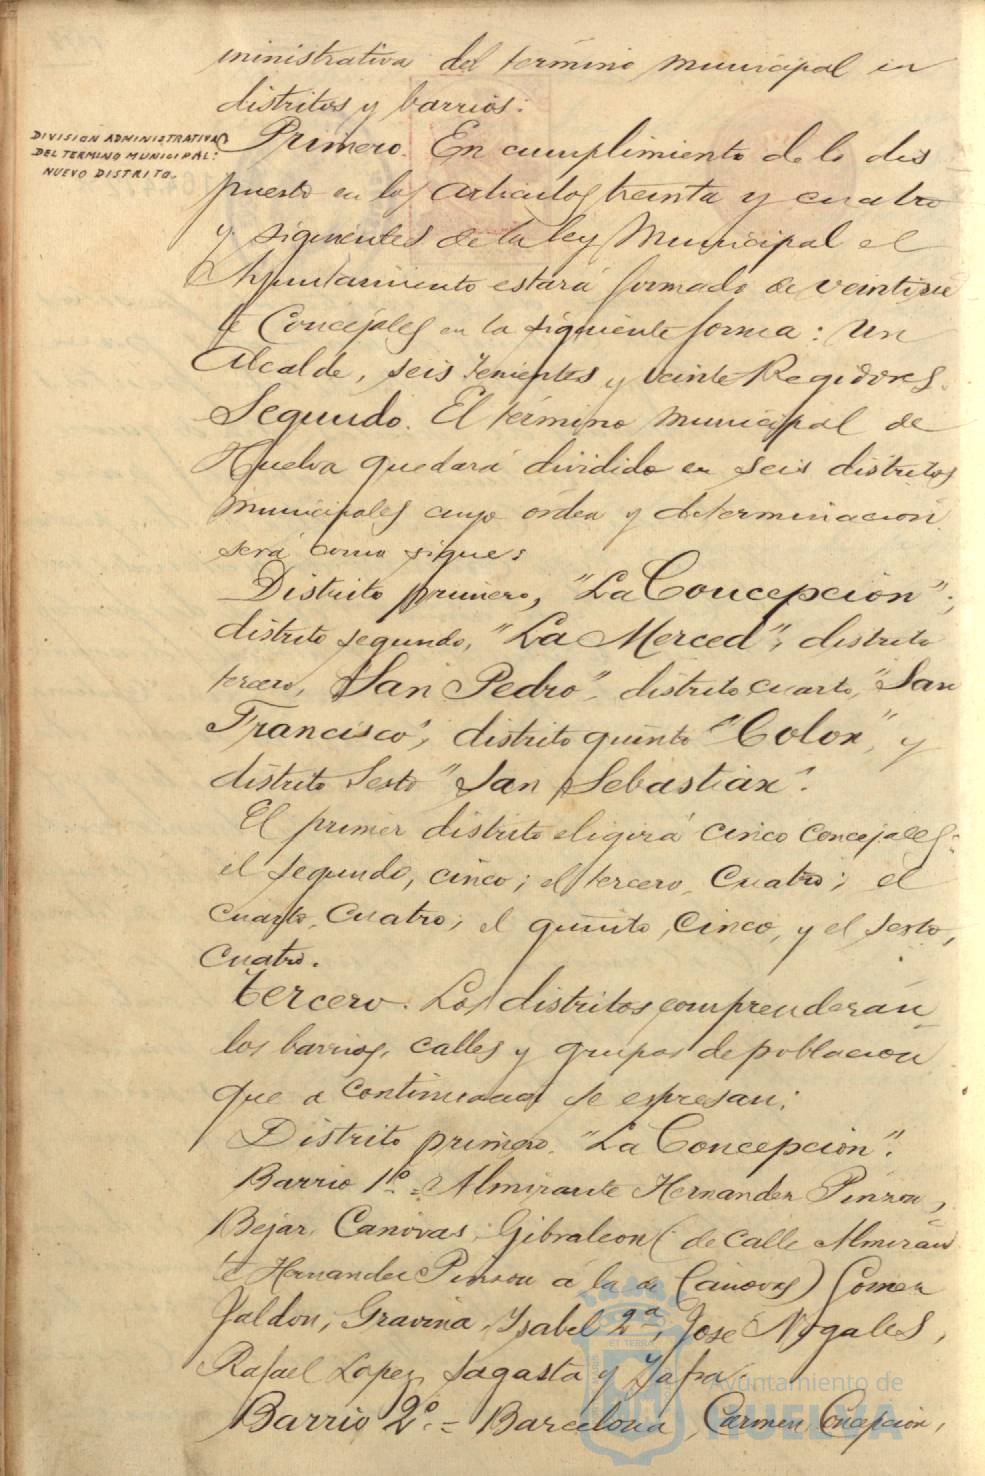 ministrativa del término municipal en
distritos y barrios:
DIVISION ADMINISTRATIVA
DEL TERMINO MUNICIPAL:
NUEVO DISTRITO.
Primero. En cumplimiento de lo dis
puesto en los articulos treinta y cuatro
y siguientes de la ley Municipal el
Ayuntamiento estará formado de veintisie
te Concejales en la siguiente forma: un
Alcalde, seis Tenientes y veinte Regidores.
Segundo. El término municipal de
Huelva quedará dividido en seis distritos
municipales cuyo órden y determinacion
será como sigue:
Distrito primero, "La Concepción";
distrito segundo, "La Merced"; distrito
tercero, "San Pedro", distrito cuarto, "San
Francisco"; distrito quinto "Colon", y
distrito Sesto "San Sebastian".
El primer distrito eligirá cinco Concejales:
el segundo, cinco; el tercero, Cuatro; el
cuarto, Cuatro; el quinto, Cinco, y el sexto,
Cuatro.
tercero. Los distritos comprenderán
los barrios, calles y grupos de poblacion
que a continuacion se expresan:
Distrito primero. "La Concepción".
Barrio 1º = Almirante Hernandez Pinzon,
Bejar, Canovas, Gibraleon (de calle Almiran
te Hernandez Pinzon á la de Canovas) Gomez
Jaldon, Gravina, Ysabel 2ª, Jose Nogales,
Rafael Lopez, Sagasta y Zafra.
Barrio 2º = Barcelona, Carmen, Concepcion,
Ayuntamiento de
HUELVA